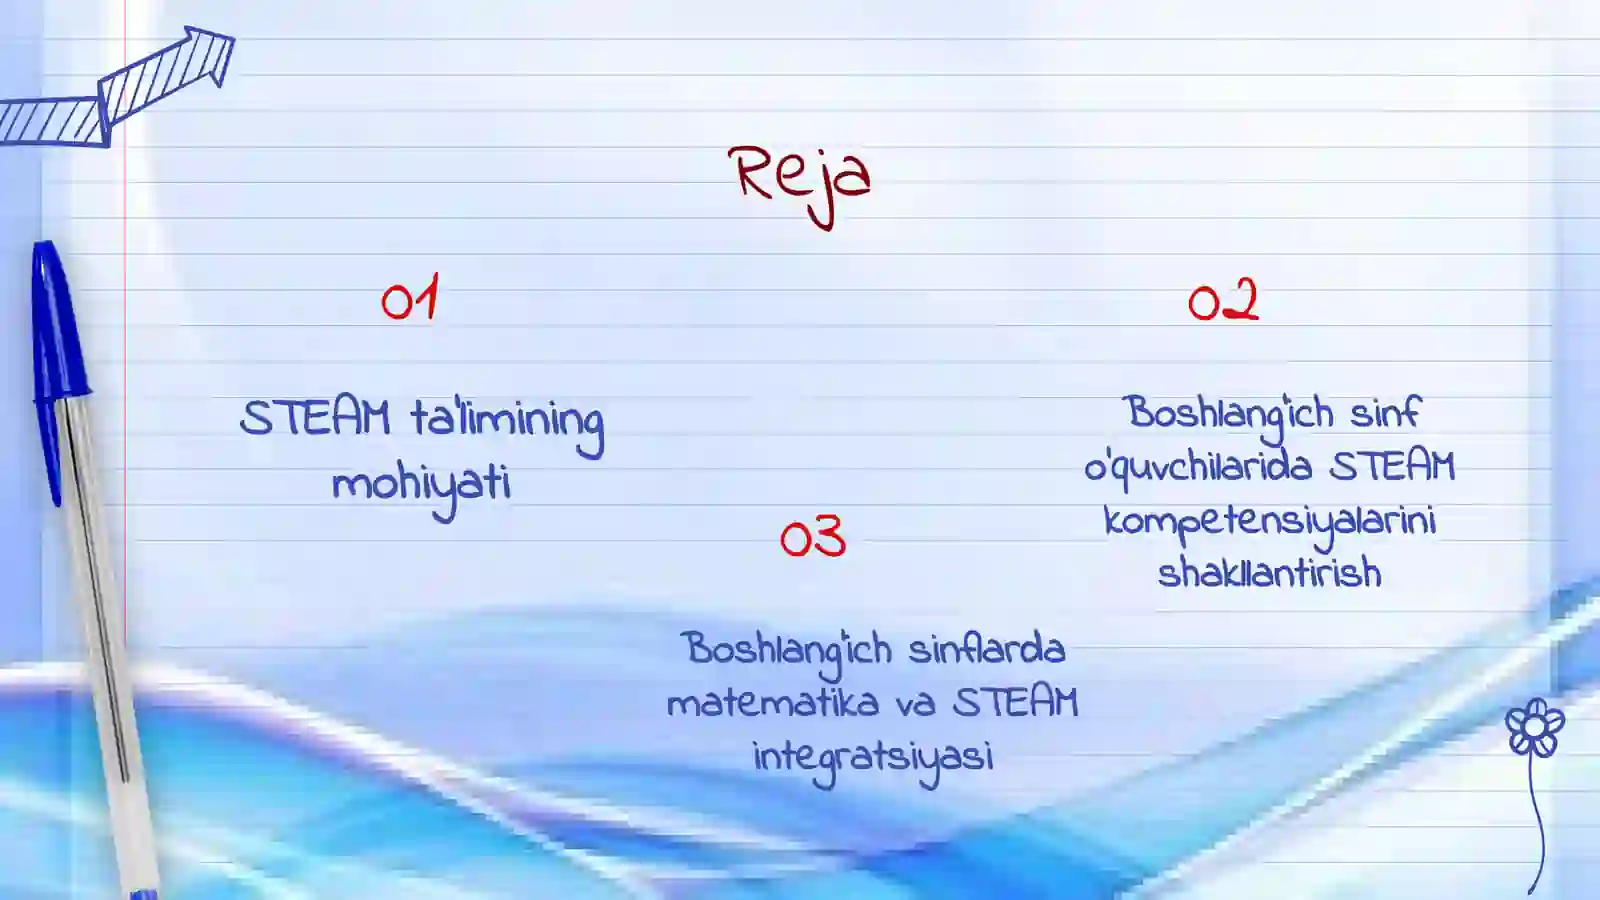 Reja
01
STEAM ta'limining
mohiyati
02
Boshlang'ich sinf
o'quvchilarida STEAM
kompetensiyalarini
shakllantirish
03
Boshlang'ich sinflarda
matematika va STEAM
integratsiyasi